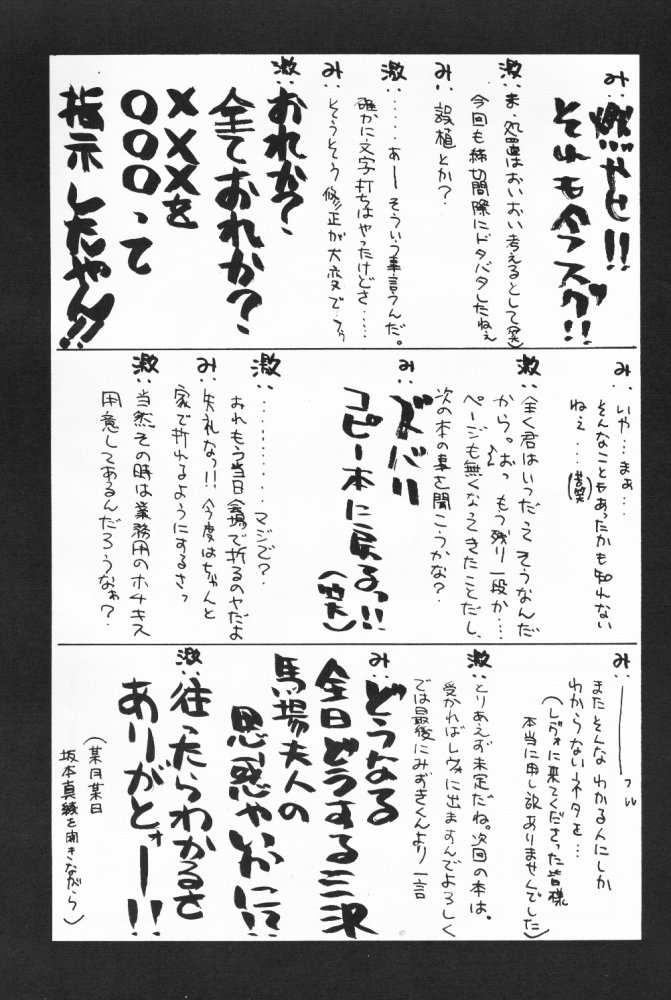 み：燃やせ!!
それも今スグ!!
激：ま、処置はおいおい考えるとして(笑)
今回も締切間際にドタバタしたねぇ
み：誤植とか？
激：……あーそういう事言うんだ。
確かに文字打ちはやったけどさ……
み：そうそう修正が大変で…
激：おれか？
全ておれか？
×××を
○○○って
指示したやん!!
み：いや…まぁ…
そんなこともあったかも知れない
ねぇ…(苦笑)
激：全く君はいつだってそうなんだ
から。おっ もう残り一段か…
ページも無くなってきたことだし、
次の本の事を聞こうかな？
み：ズバリ
コピー本に戻るっ!!
激：……………マジで？
おれもう当日会場で折るのヤだよ
み：失礼なっ!!今度はちゃんと
家で折れるようにするさっ
激：当然その時は業務用のホチキス
用意してあるんだろうなぁ？
み：――――フッ
またそんなわかる人にしか
わからないネタを…
(レヴォに来てくださった皆様
本当に申し訳ありませんでした)
激：とりあえず未定だね。次回の本は。
受かればレヴォに出ますんでよろしく
では最後にみずきくんより一言
み：どうなる
全日どうする三沢
馬場夫人の
思惑やいかに!?
激：往ったらわかるさ
ありがとォー!!
(某月某日
坂本真綾を聞きながら)